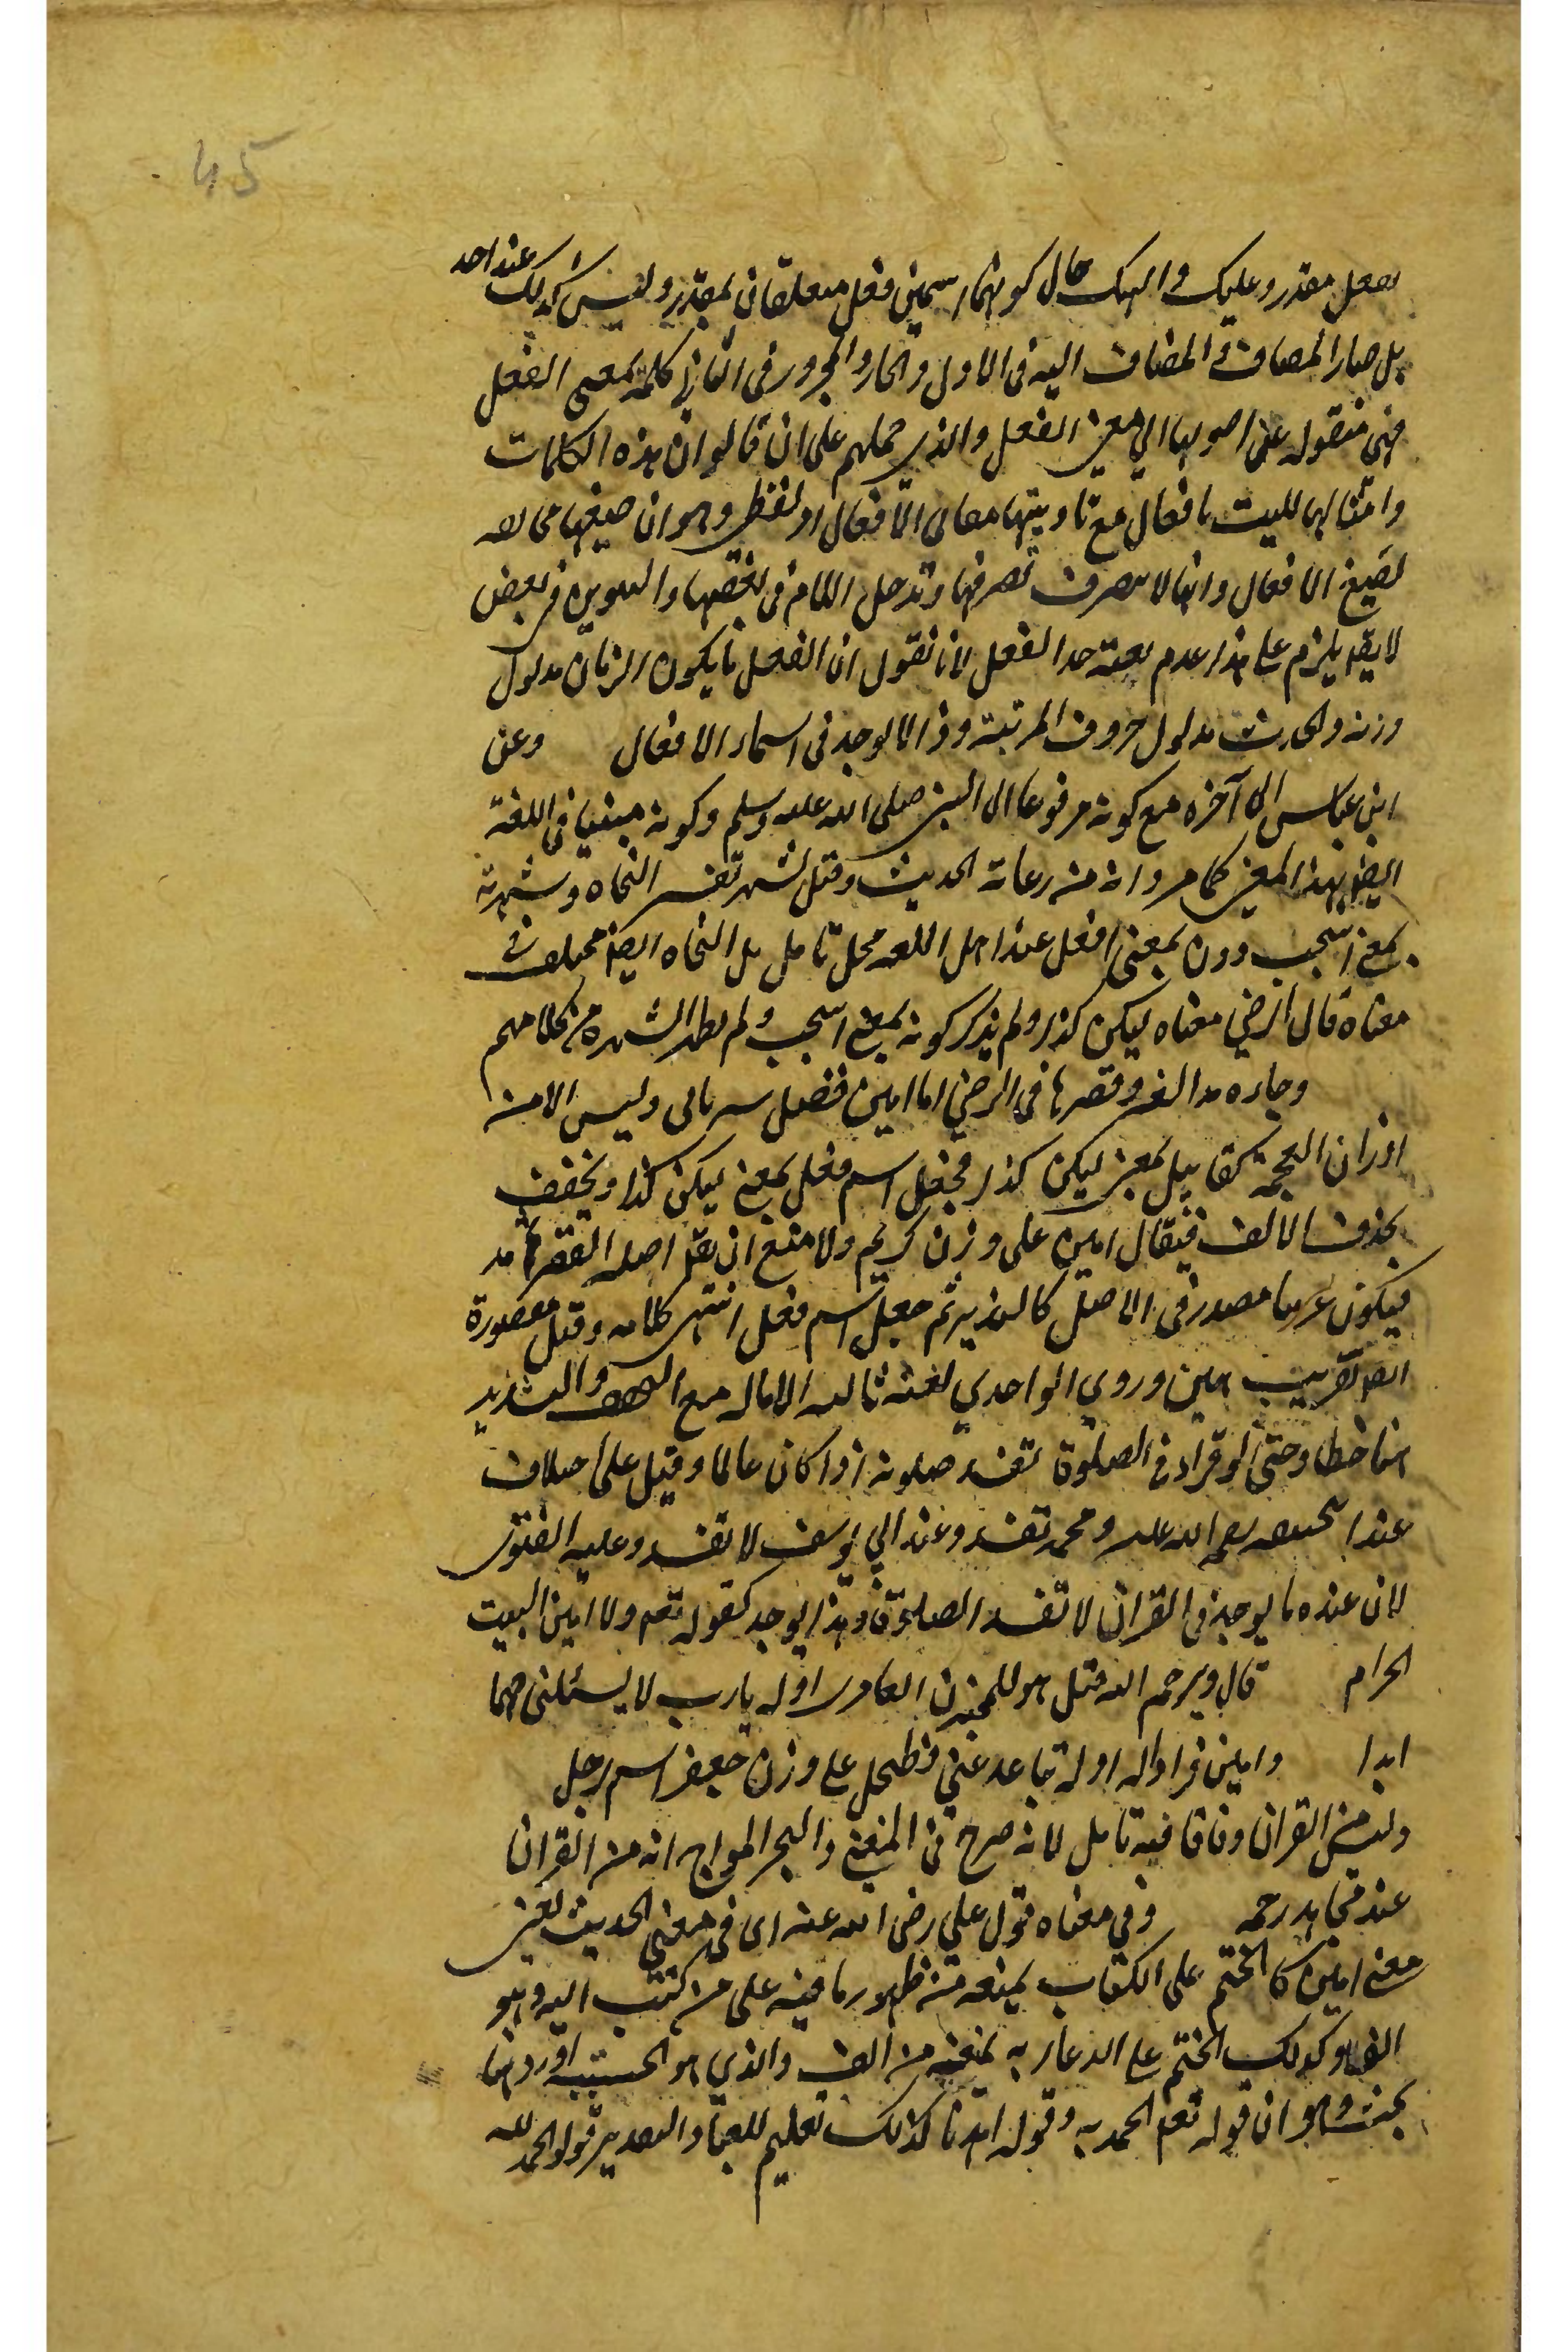 45
بفعل مقدر وعليك واليك حال كونهما اسمين فعل متعلقان بمقدر وليس كذلك عند احد
بل صار المضاف والمضاف اليه في الاول والجار والمجرور في الثاني كلمة بمعنى الفعل
فهي منقولة عن اصولها الي معنى الفعل والذي حملهم على ان قالوا ان هذه الكلمات
وامثالها ليست بافعال مع تاديتها معاني الافعال امر لفظي وهو ان صيغها مخالفة
لصيغ الافعال وانها لا تتصرف تصرفها وتدخل اللام في بعضها والتنوين في بعض
لا يقال يلزم على هذا عدم صحة حد الفعل لانا نقول ان الفعل ما يكون الزمان مدلول
وزنه والحدث مدلول حروف المرتبة وذا لا يوجد في اسماء الافعال وعن
ابن عباس الى آخره مع كونه مرفوعا الى النبي صلى الله عليه وسلم وكونه مبنيا في اللغة
ايضا بهذا المعنى كما مر وانه من رعاية الحديث وقيل تفسير النحاة وشهرته
بمعنى استجب دون بمعنى افعل عند اهل اللغة محل تامل بل النحاة ايضا مختلف في
معناه قال الرضي معناه ليكن كذا ولم يذكر كونه بمعنى استجب ولم يظهر الشهرة من كلامهم
وجاء مد الفه وقصرها في الرضي اما امين فقيل سرياني وليس الا من
اوزان العجمة كقابيل بمعنى ليكن كذا فجعل اسم فعل بمعنى ليكن كذا ويخفف
بحذف الالف فيقال امين على وزن كريم ولا منع ان يقال اصله القصر ثم مد
فيكون عربيا مصدر في الاصل كالنذير ثم جعل اسم فعل انتهى كلامه وقيل مقصورة
امين وروي الواحدي لغة ثالثة الامالة مع والتشديد
خطأ وحتى لو قرا في الصلوة تفسد صلوته اذا كان عالما وقيل على اختلاف
عند رحمة الله عليه ومحمد تفسد وعند ابي يوسف لا تفسد وعليه الفتوى
لان عنده ما يوجد في القران لا تفسد الصلوة وهذا يوجد كقوله تعم ولا امين البيت
الحرام قال ويرحم الله قيل هو للمجنون العامري اوله يا رب لا حبها
ابدا وامين فزاد الله اوله تباعد عني فطحل على وزن جعفر اسم رجل
وليس من القران وفاقا فيه تامل لانه صرح في المغني والبحر المواج انه من القران
عند مجاهد رحمه وفي معناه قول علي رضي الله عنه اى في معنى الحديث يعني
معنى امين كالختم على الكتاب يمنعه من ظهور ما فيه على من كتب اليه وهو
وكذلك الختم على الدعاء به يمنعه من والذي هو اورد
بحث وهو ان قوله تعم الحمد به وقوله اهدنا كذلك تعليم للعباد والتقدير قولوا الحمد لله